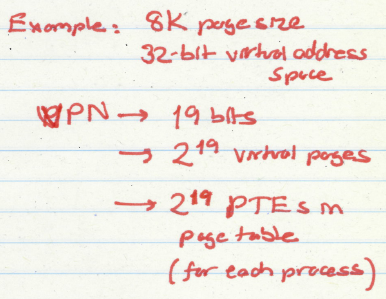 Example: 8K page size
32-bit virtual address
space
VPN → 19 bits
→ 2^19 virtual pages
→ 2^19 PTEs in
page table
(for each process)